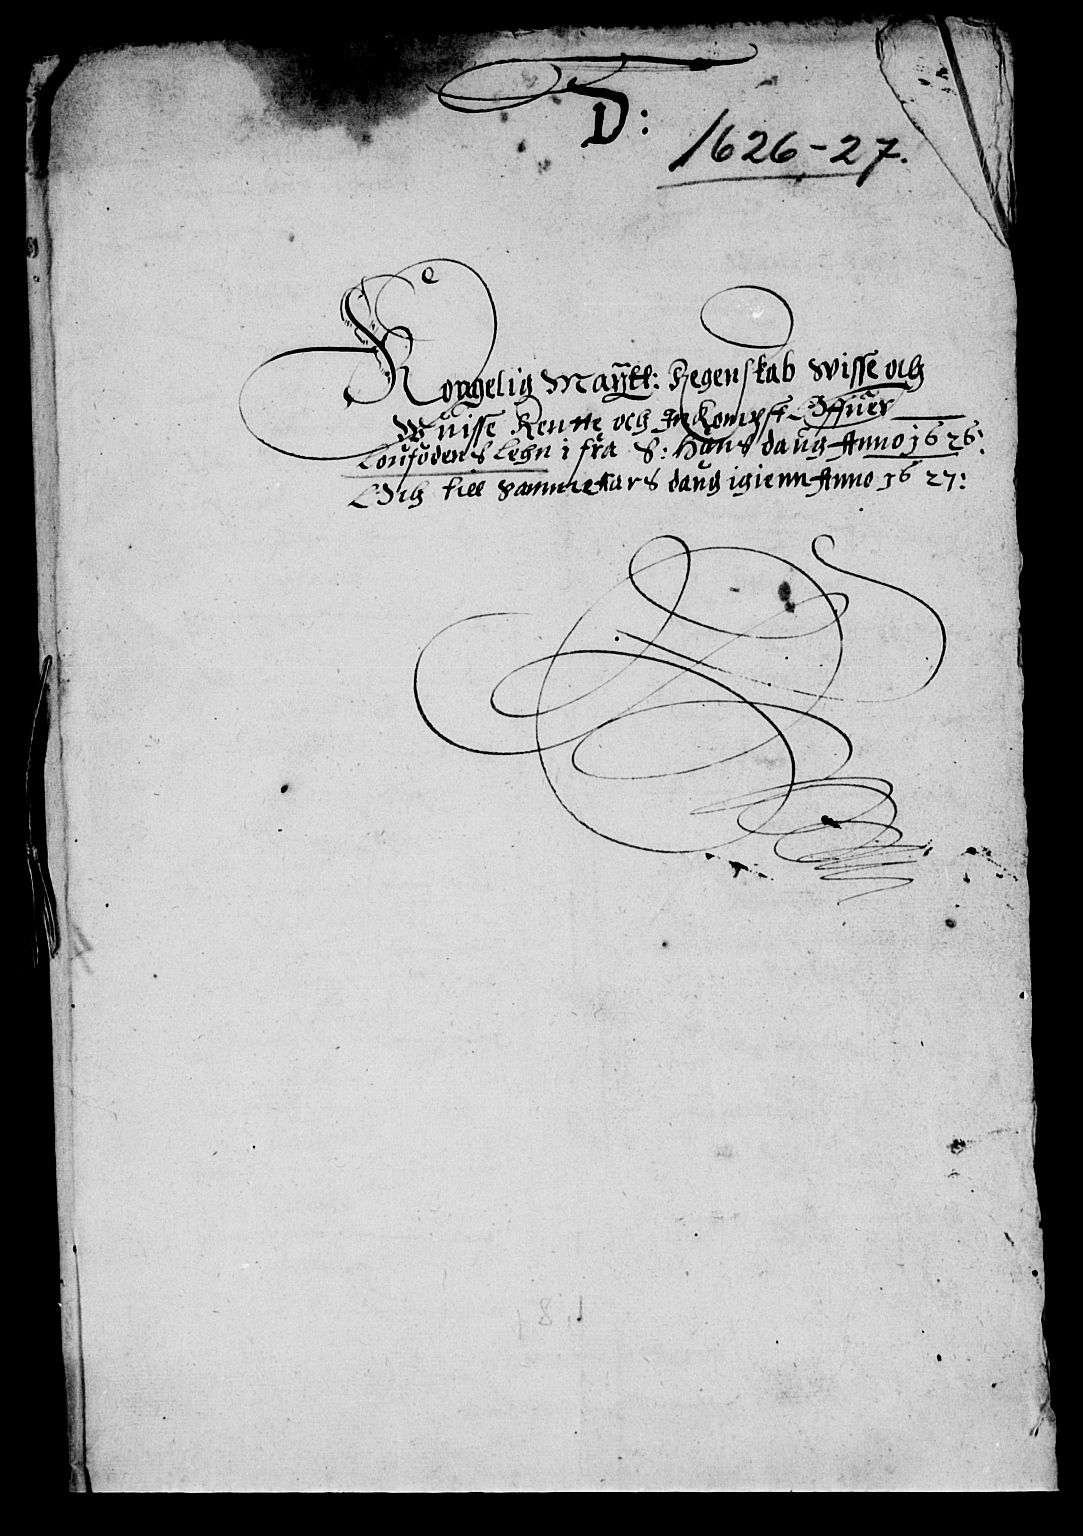 D:
1626-27.
Kongelig Maÿtt: Regenskab Wisse och
Wuisse Rentte och Inkompst Offuer
Loufodens Lehn i fra S: Hans daug Anno 1626:
Och till samme aars daug igienn Anno 1627: